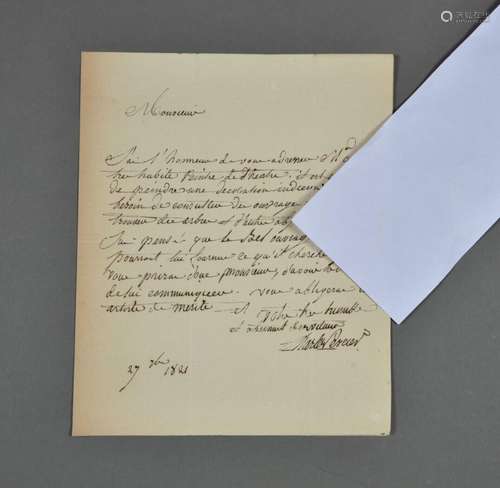 Monsieur
J'ai l'honneur de vous adresser
tres habile Peintre de Theatre, il est
de peindre une decoration indienne
besoin de consulter des ouvrages
trouver des arbres et d'autres
J'ai pensé que le bel ouvrage
pourrait lui fournir ce qu'il cherche
vous prierai donc Monsieur, d'avoir la
de lui communiquer. vous obligerez
artiste de merite — et votre tres humble
et obeissant serviteur
Charles Percier
27 1821